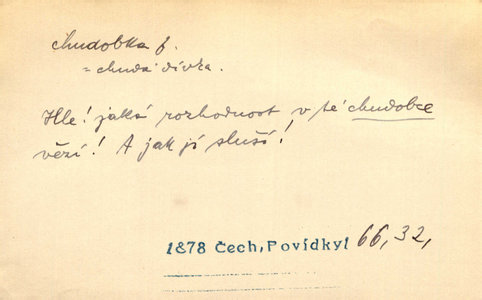 chudobka f.
= chudá dívka.
Hle! jaká rozhodnost v té chudobce
vězí! A jak jí sluší!
1878 Čech, Povídky1 66, 32,